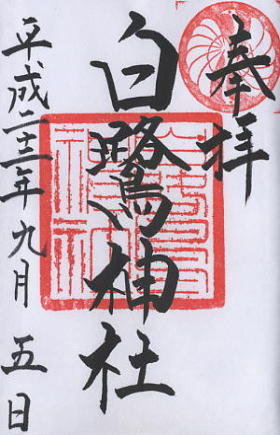 奉拝
白鷺神社
平成二十三年九月五日